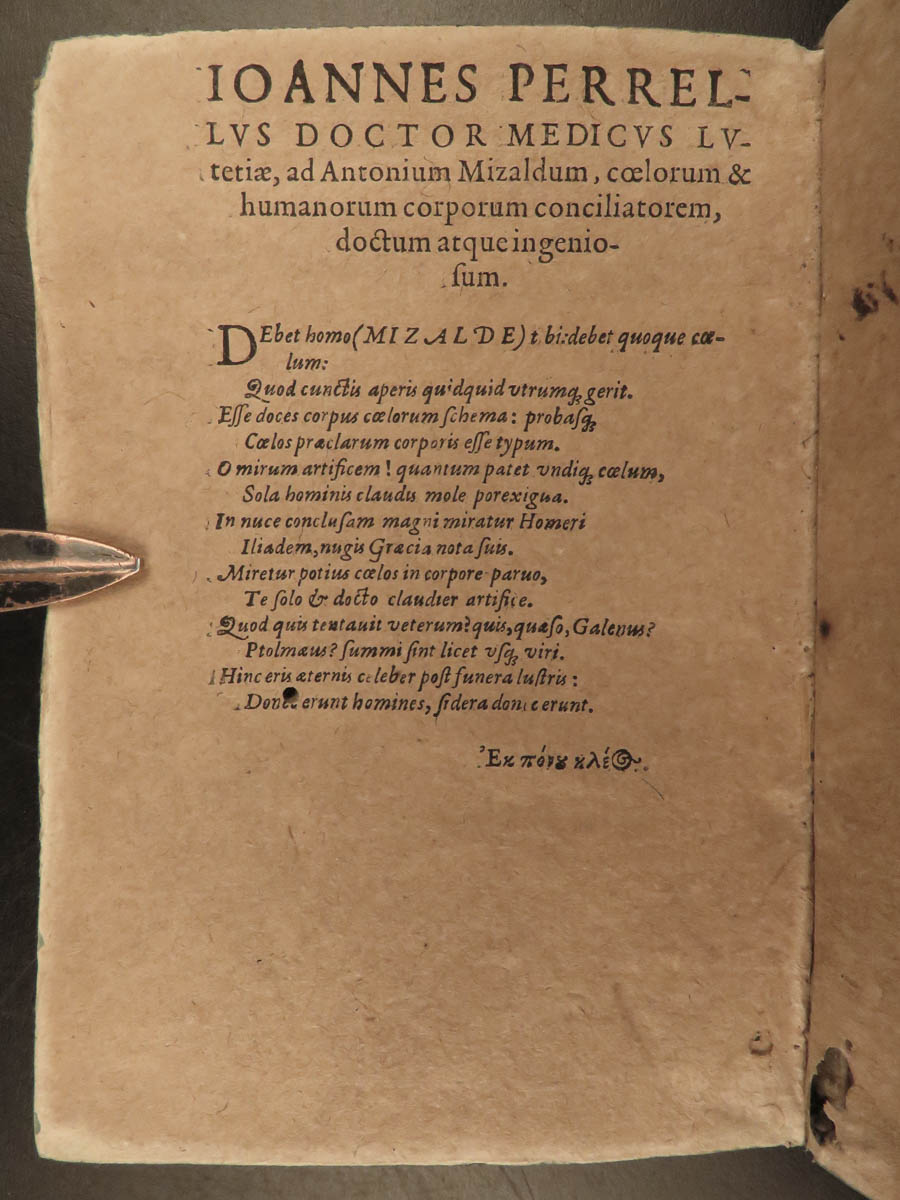 IOANNES PERREL-
LVS DOCTOR MEDICVS LV-
tetiæ, ad Antonium Mizaldum, cœlorum &
humanorum corporum conciliatorem,
doctum atque ingenio-
ſum.
DEbet homo (MIZALDE) t bi: debet quoque cœ-
lum:
Quod cunctis aperis quidquid vtrumq; gerit.
Eſſe doces corpus cœlorum ſchema: probaſq;
Cœlos præclarum corporis eſſe typum.
O mirum artificem! quantum patet vndiq; cœlum,
Sola hominis claudis mole porexigua.
In nuce concluſam magni miratur Homeri
Iliadem, nugis Græcia nota ſuis.
Miretur potius cœlos in corpore paruo,
Te ſolo & docto claudier artifice.
Quod quis tentauit veterum? quis, quæſo, Galenus?
Ptolmæus? ſummi ſint licet vſq; viri.
Hinc eris æternis celeber poſt funera luſtris:
Donec erunt homines, ſidera donec erunt.
Ἐκ πόνȣ κλέος.